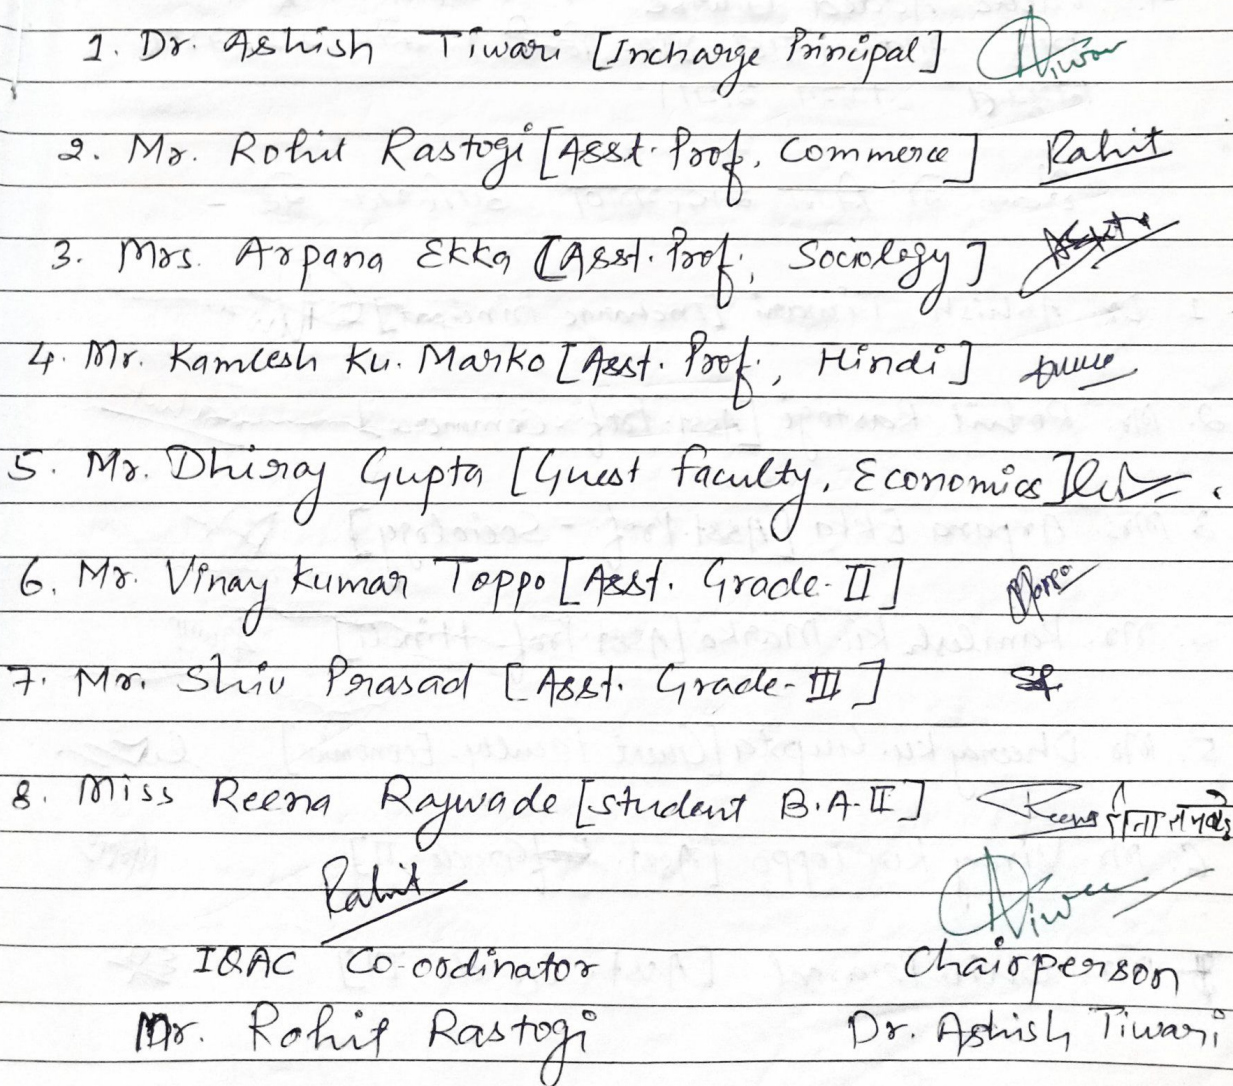 1. Dr. Ashish Tiwari [Incharge Principal]
2. Mr. Rohit Rastogi [Asst. Prof, Commerce] Rahit
3. Mrs. Arpana Ekka [Asst. Prof., Sociology]
4. Mr. Kamlesh Ku. Marko [Asst. Prof., Hindi]
5. Mr. Dhiraj Gupta [Guest faculty, Economics]
6. Mr. Vinay Kumar Toppo [Asst. Grade-II]
7. Mr. Shiv Prasad [Asst. Grade-III]
8. Miss Reena Rajwade [Student B.A-II] Reena
Rahit
IQAC Co-ordinator Chairperson
Mr. Rohit Rastogi Dr. Ashish Tiwari